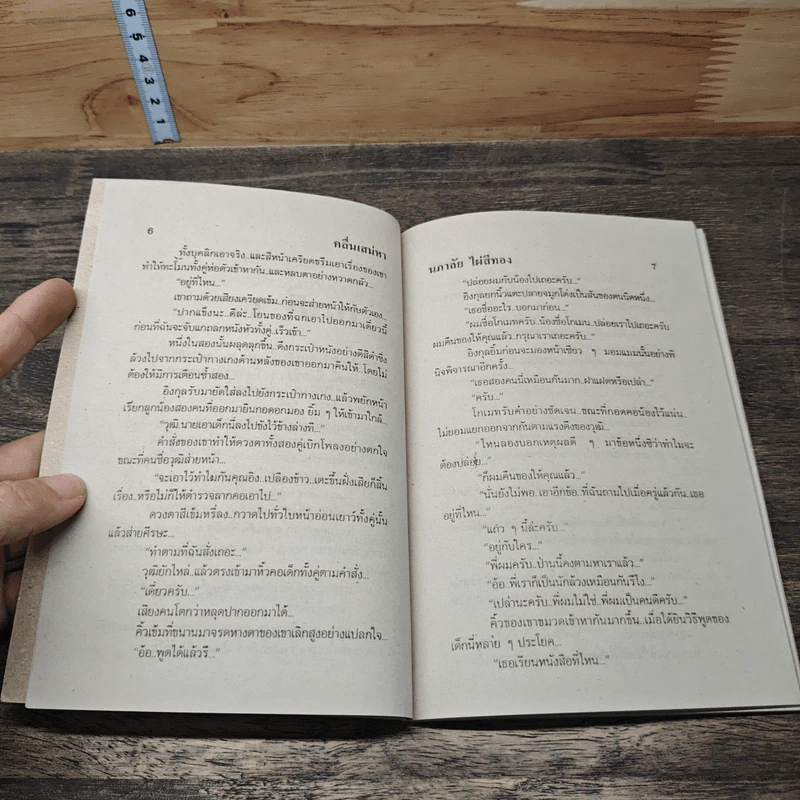 6 5 4 3 2 1
6
คลื่นเสน่หา
ทั้งบุคลิกเอาจริง..และสีหน้าเครียดขรึมเอาเรื่องของเขา
ทำให้ทะโมนทั้งคู่ห่อตัวเข้าหากัน..และหลบตาอย่างหวาดกลัว...
“อยู่ที่ไหน...”
เขาถามด้วยเสียงเครียดเข้ม..ก่อนจะส่ายหน้าให้กับตัวเอง...
“ปากแข็งนะ..ดีล่ะ..โอนของที่ฉกเอาไปออกมาเดี๋ยวนี้
ก่อนที่ฉันจะจับแกถลกหนังหัวทั้งคู่..เร็วเข้า...”
หนึ่งในสองนั้นผลุดลุกขึ้น..ดึงกระเป๋าหนังอย่างดีสีดำซึ่ง
ล้วงไปจากกระเป๋ากางเกงด้านหลังของเขาออกมาคืนให้..โดยไม่
ต้องให้มีการเตือนซ้ำสอง...
อิงกุลรับมายัดใส่ลงไปยังกระเป๋ากางเกง..แล้วพยักหน้า
เรียกลูกน้องสองคนที่ออกมายืนกอดอกมอง ยิ้ม ๆ ให้เข้ามาใกล้..
“วุฒิ..นายเอาเด็กนี่ลงไปขังไว้ข้างล่างที...”
คำสั่งของเขาทำให้ดวงตาทั้งสองคู่เบิกโพลงอย่างตกใจ
ขณะที่คนชื่อวุฒิส่ายหน้า...
“จะเอาไว้ทำไมกันคุณอิง..เปลืองข้าว..เตะขึ้นฝั่งเสียก็สิ้น
เรื่อง..หรือไม่ก็ให้ตำรวจลากคอเอาไป...”
ดวงตาสีเข้มหรี่ลง..กวาดไปทั่วใบหน้าอ่อนเยาว์ทั้งคู่นั้น
แล้วส่ายศีรษะ...
“ทำตามที่ฉันสั่งเถอะ...”
วุฒิยักไหล่..แล้วตรงเข้ามาหิ้วคอเด็กทั้งคู่ตามคำสั่ง...
“เดี๋ยวครับ...”
เสียงคนโตกว่าหลุดปากออกมาได้...
คิ้วเข้มที่ขนานมาจรดหางตาของเขาเลิกสูงอย่างแปลกใจ...
“อ้อ..พูดได้แล้วรึ...”
นภาลัย ไผ่สีทอง
7
“ปล่อยผมกับน้องไปเถอะครับ...”
อิงกุลยกนิ้วแตะปลายจมูกโด่งเป็นสันของตนนิดหนึ่ง...
“เธอชื่ออะไร..บอกมาก่อน...”
“ผมชื่อโกเมทครับ..น้องชื่อโกเมน..ปล่อยเราไปเถอะครับ
ผมคืนของให้คุณแล้ว..กรุณาเราเถอะครับ...”
อิงกุลยิ้มก่อนจะมองหน้าเซียว ๆ มอมแมมนั้นอย่างพิ
นิจพิจารณาอีกครั้ง...
“เธอสองคนนี่เหมือนกันมาก..ฝาแฝดหรือเปล่า...”
“ครับ...”
โกเมทรับคำอย่างชัดเจน..ขณะที่กอดคอน้องไว้แน่น..
ไม่ยอมแยกออกจากกันตามแรงดึงของวุฒิ...
“ไหนลองบอกเหตุผลดี ๆ มาข้อหนึ่งซิว่าทำไมจะ
ต้องปล่อย...”
“ก็ผมคืนของให้คุณแล้ว...”
“นั่นยังไม่พอ..เอาอีกข้อ..ที่ฉันถามไปเมื่อครู่แล้วกัน..เธอ
อยู่ที่ไหน...”
“แถว ๆ นี้ล่ะครับ...”
“อยู่กับใคร...”
“พี่ผมครับ..ป่านนี้คงตามหาเราแล้ว...”
“อ้อ..พี่เราก็เป็นนักล้วงเหมือนกันรึไง...”
“เปล่านะครับ..พี่ผมไม่ใช่..พี่ผมเป็นคนดีครับ...”
คิ้วของเขาขมวดเข้าหากันมากขึ้น..เมื่อได้ยินวิธีพูดของ
เด็กนี่หลาย ๆ ประโยค...
“เธอเรียนหนังสือที่ไหน...”